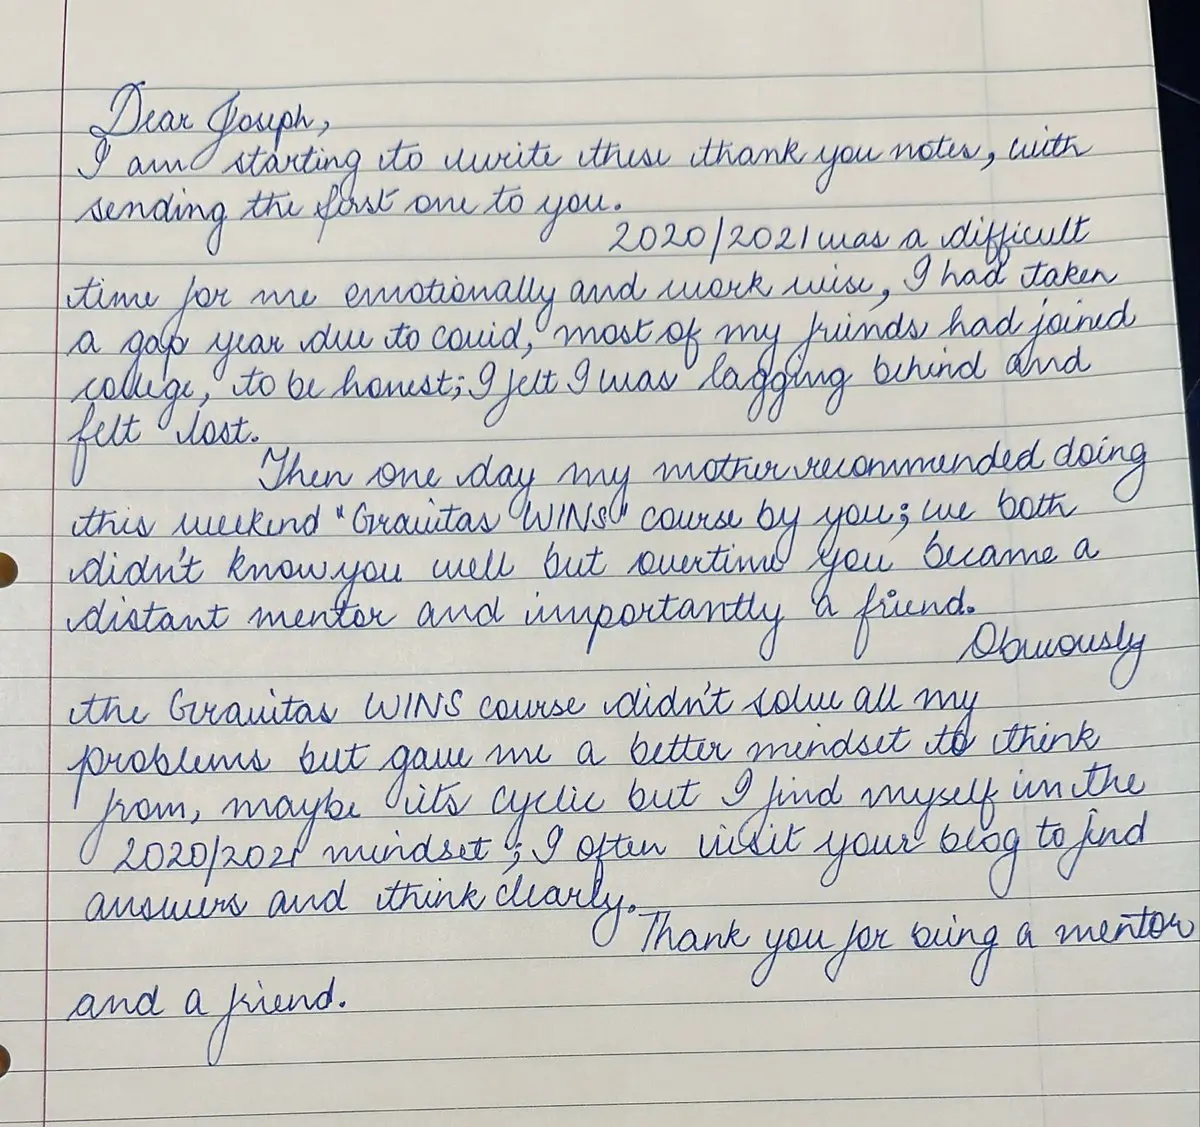 Dear Joseph,
I am starting to write these thank you notes, with
sending the first one to you.
2020/2021 was a difficult
time for me emotionally and work wise, I had taken
a gap year due to covid, most of my friends had joined
college, to be honest; I felt I was lagging behind and
felt lost.
Then one day my mother recommended doing
this weekend "Gravitas WINS" course by you; we both
didn't know you well but overtime you became a
distant mentor and importantly a friend.
Obviously
the Gravitas WINS course didn't solve all my
problems but gave me a better mindset to think
from, maybe its cyclic but I find myself in the
2020/2021 mindset; I often visit your blog to find
answers and think clearly.
Thank you for being a mentor
and a friend.